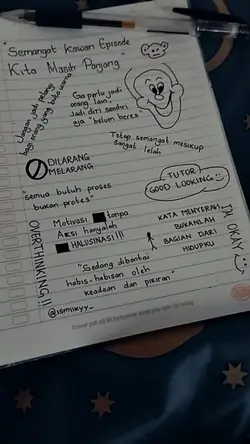 "Semangat Kawan Episode
Kita Masih Panjang"
Jangan jadi pelangi
bagi orang yang buta warna
Gas perlu jadi
orang lain.
Jadi diri sendiri
aja "belum beres"
Tetap semangat meskiup
sangat lelah
DILARANG
MELARANG
TUTOR
GOOD LOOKING
"semua butuh proses
bukan protes"
OVERTHINKING!!
Motivasi tanpa
Aksi hanyalah
HALUSINASI!!!
KATA MENYERAH
BUKANLAH
BAGIAN DARI
HIDUPKU
I'M OKAY
"Sedang dibantai
habis-habisan oleh
keadaan dan pikiran"
@ismiixyy_